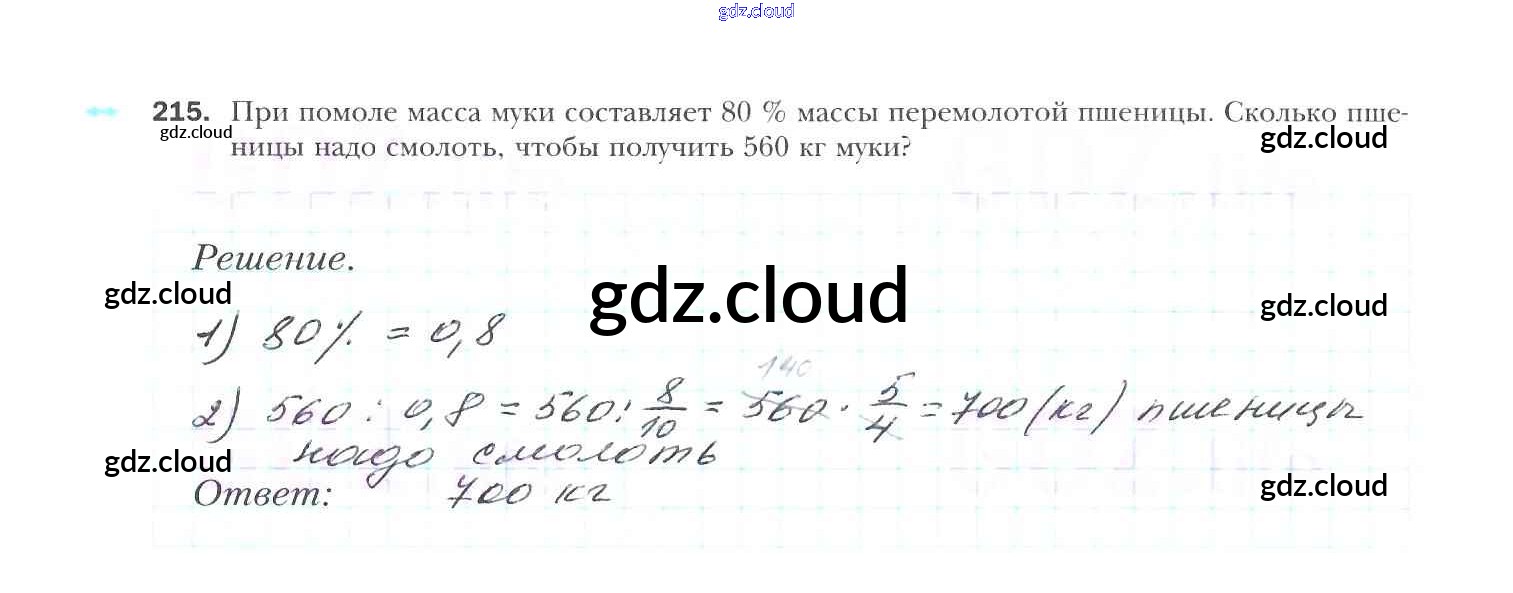 gdz.cloud
215. При помоле масса муки составляет 80 % массы перемолотой пшеницы. Сколько пше-
gdz.cloud
gdz.cloud
ницы надо смолоть, чтобы получить 560 кг муки?
Решение.
gdz.cloud
gdz.cloud
gdz.cloud
1) 80% = 0,8
140
2) 560 : 0,8 = 560 : 8/10 = 560 · 5/4 = 700 (кг) пшеницы
надо смолоть
gdz.cloud
gdz.cloud
Ответ: 700 кг